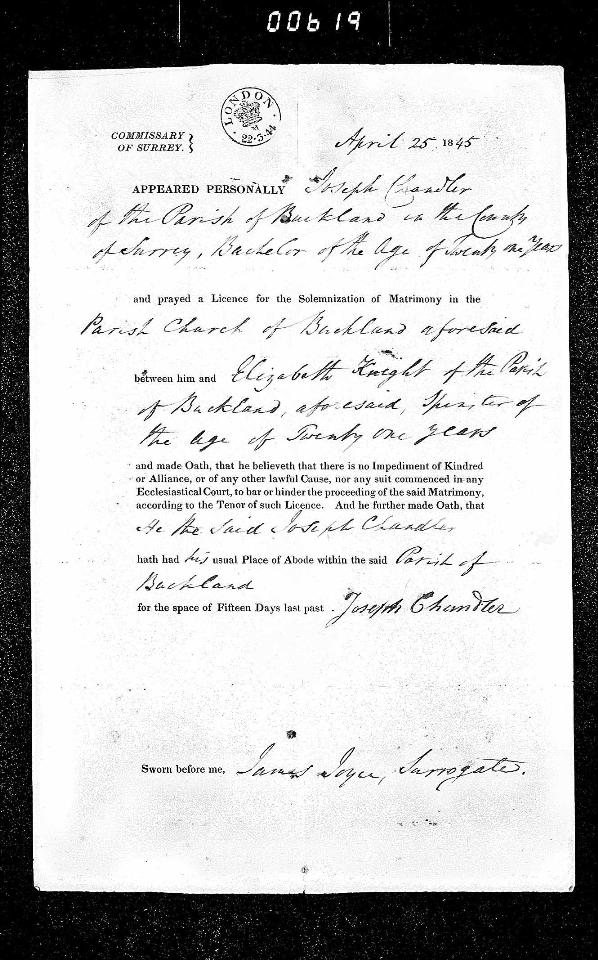 00619
LONDON
22·3·44
COMMISSARY
OF SURREY.
April 25 1845
APPEARED PERSONALLY Joseph Chandler
of the Parish of Buckland in the County
of Surrey, Bachelor of the Age of Twenty one Years
and prayed a Licence for the Solemnization of Matrimony in the
Parish Church of Buckland aforesaid
between him and Elizabeth Knight of the Parish
of Buckland, aforesaid, Spinster of
the age of Twenty one years
and made Oath, that he believeth that there is no Impediment of Kindred
or Alliance, or of any other lawful Cause, nor any suit commenced in any
Ecclesiastical Court, to bar or hinder the proceeding of the said Matrimony,
according to the Tenor of such Licence. And he further made Oath, that
He the said Joseph Chandler
hath had his usual Place of Abode within the said Parish of
Buckland
for the space of Fifteen Days last past . Joseph Chandler
Sworn before me, James Joyce, Surrogate.